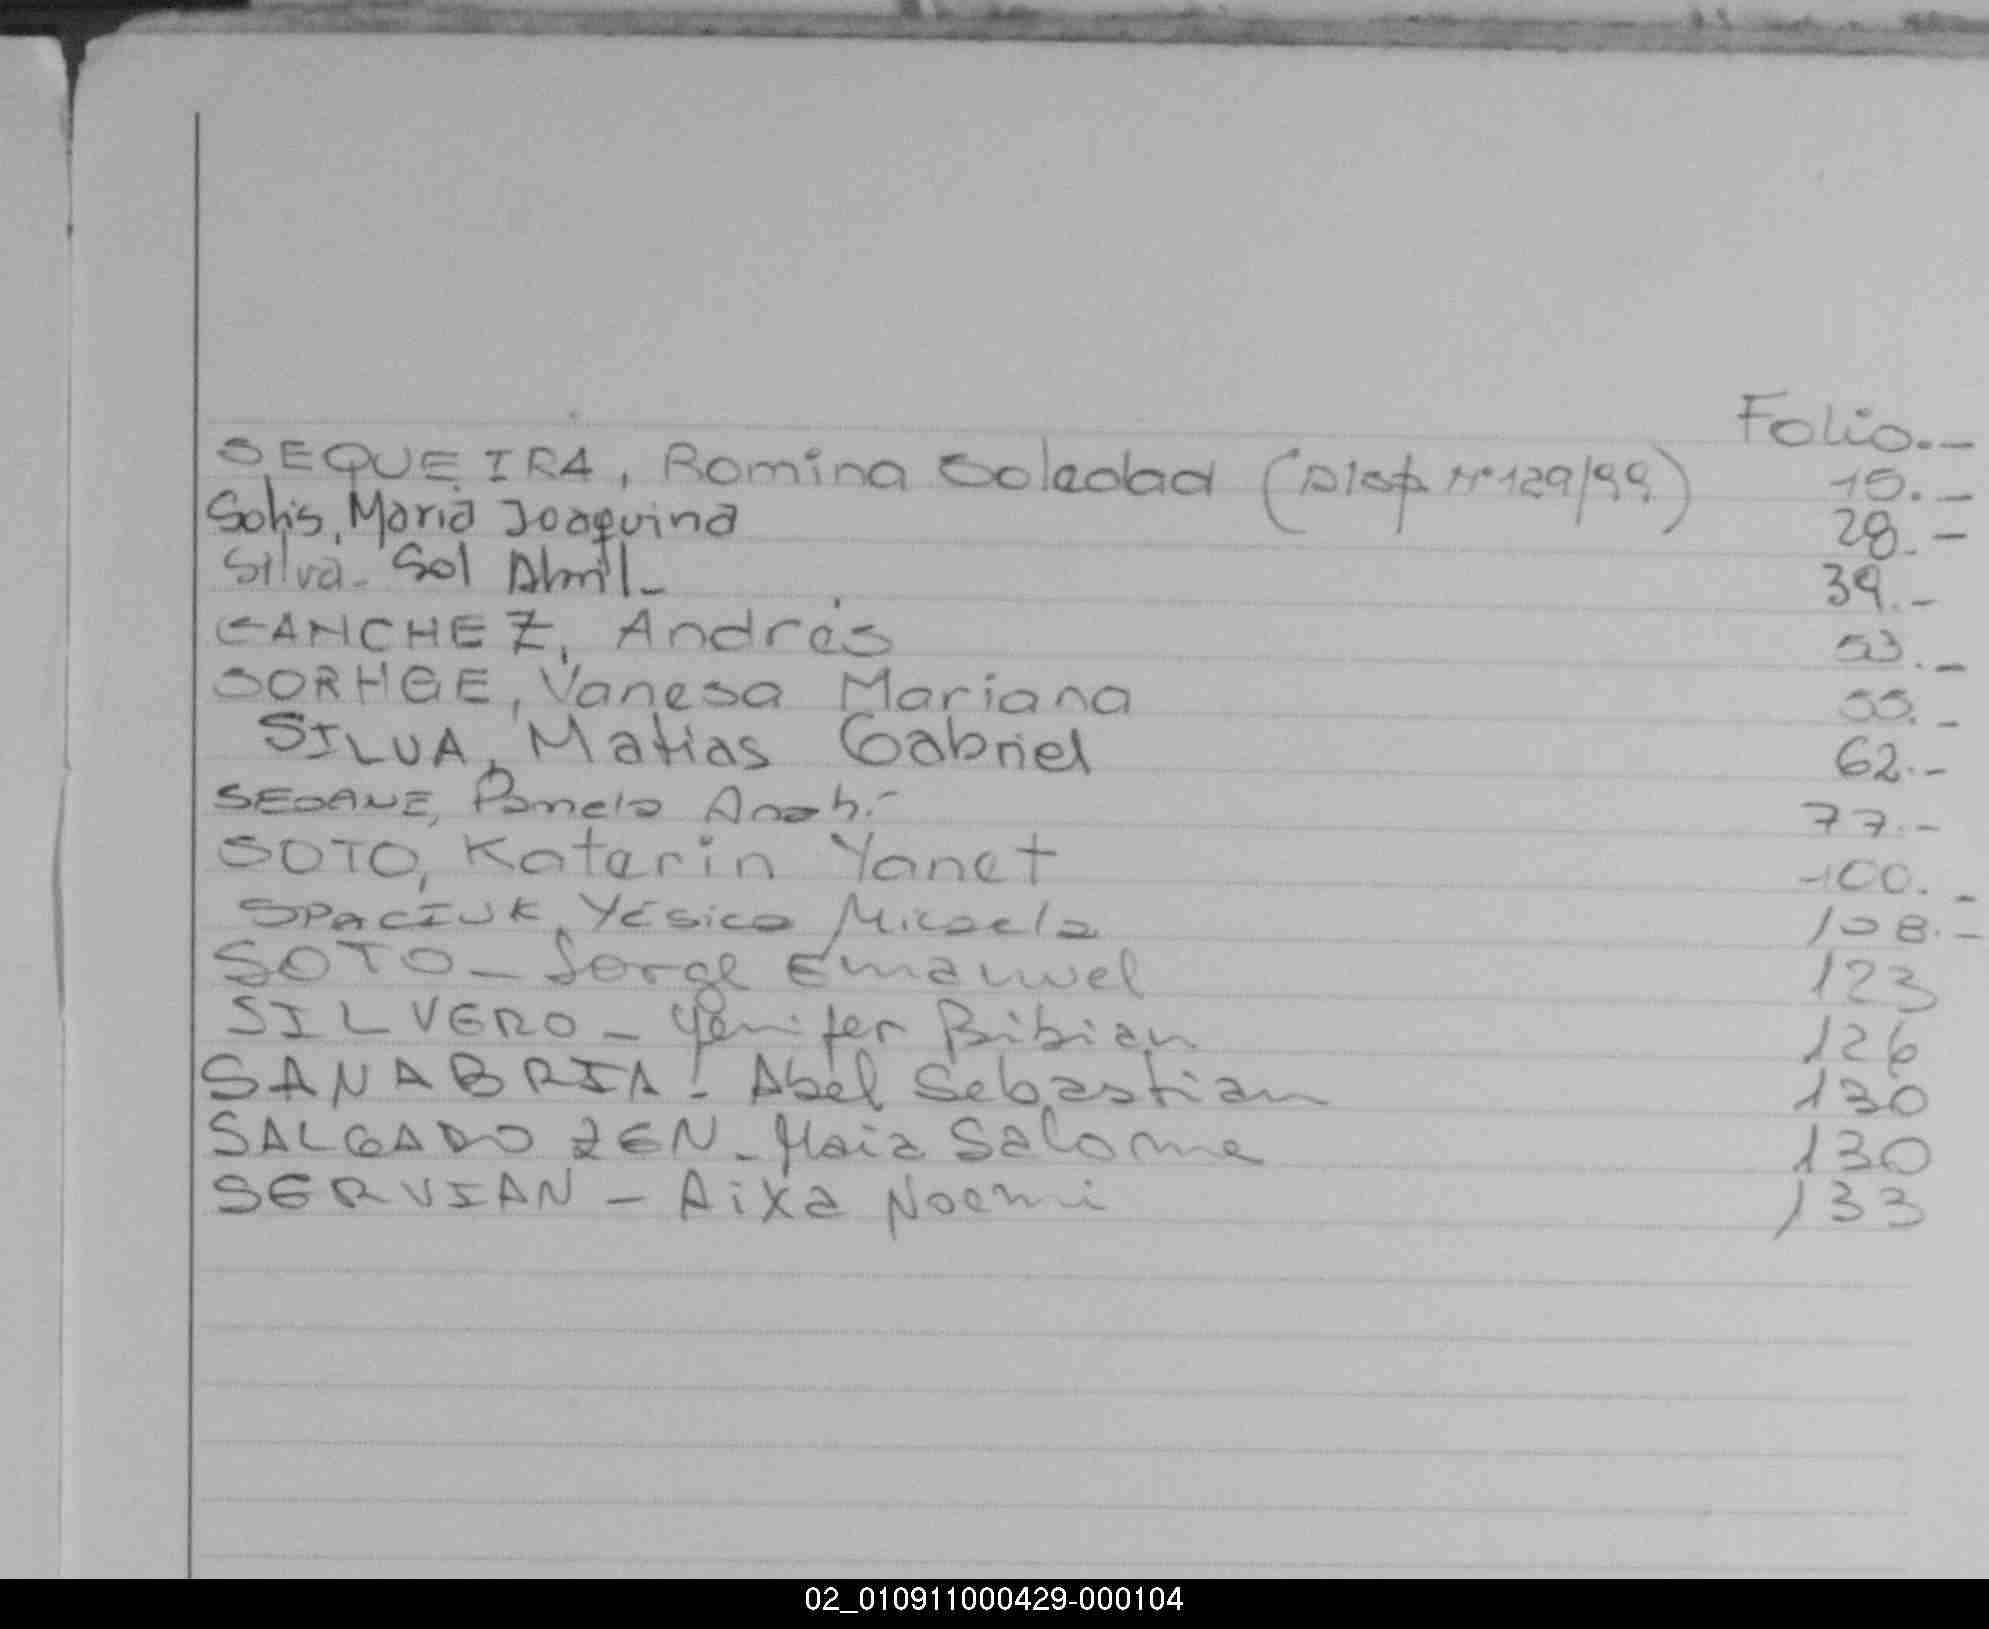 Folio.-
SEQUEIRA, Romina Soledad (Disp Nº 129/99) 15.-
Solis, Maria Joaquina 28.-
Silva- Sol Abril- 39.-
SANCHEZ, Andrés 53.-
SORHGE, Vanesa Mariana 55.-
SILVA, Matias Gabriel 62.-
SEOANE, Pamela Anahí- 77.-
SOTO, Katerin Yanet 100.-
SPACIUK, Yésica Micaela 108.-
SOTO - Jorge Emanuel 123
SILVERO - Yenifer Bibian 126
SANABRIA - Abel Sebastian 130
SALGADO ZEN - Maia Salome 130
SERVIAN - Aixa Noemi 133
02_010911000429-000104